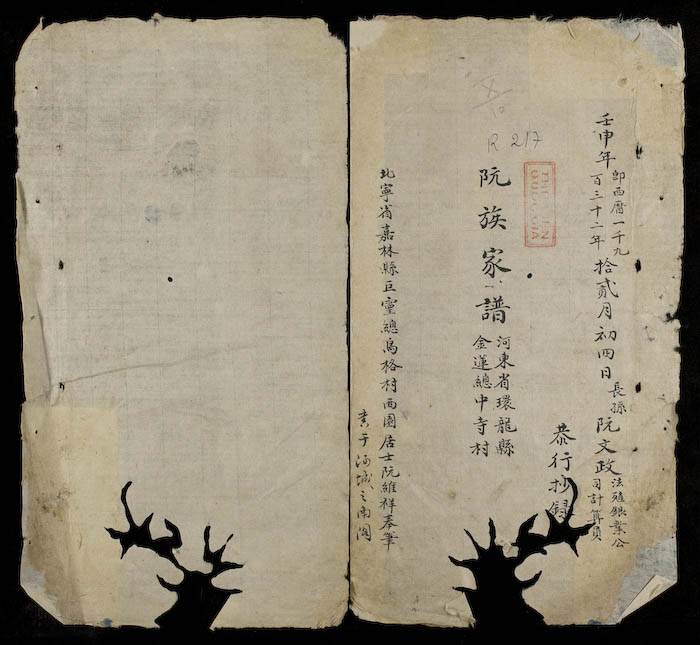 壬申年即西曆一千九百三十二年拾貳月初四日長孫阮文政法殖銀業公司計算員
恭行抄錄
R 217
阮族家譜
河東省環龍縣
金蓮總中寺村
北寧省嘉林縣巨靈總烏格村西園居士阮維祥奉筆
書于河城之南閣